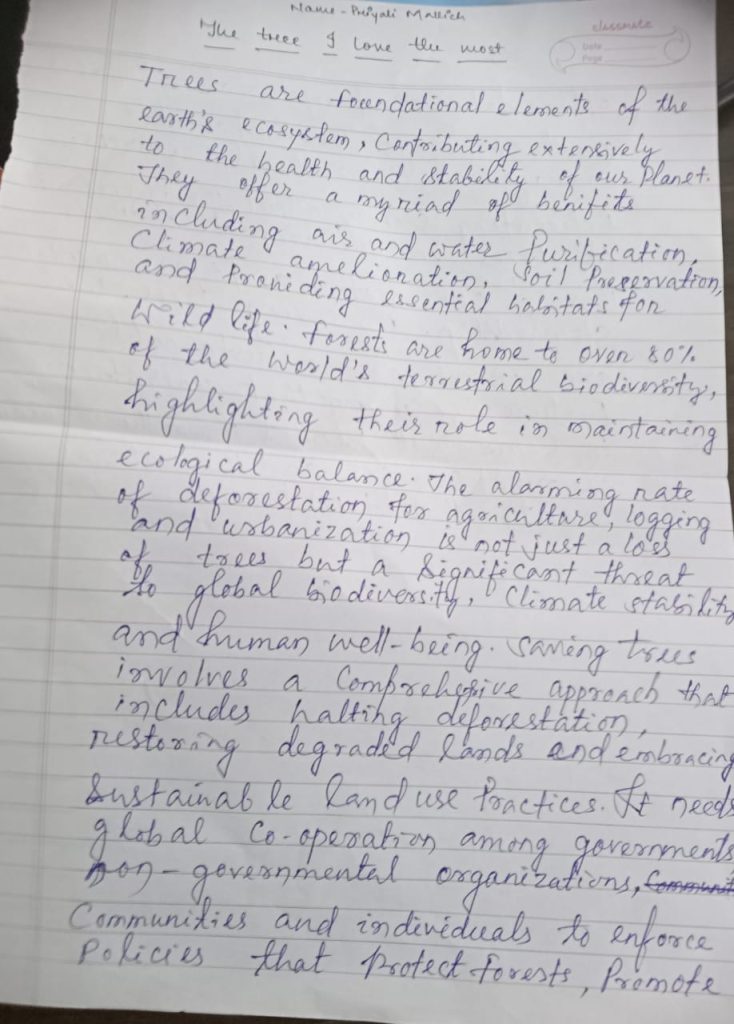 Name - Priyali Mallick
classmate
Date
Page
The tree I love the most
Trees are foundational elements of the
earth's ecosystem, Contributing extensively
to the health and stability of our Planet.
They offer a myriad of benifits
including air and water Purification,
Climate amelionation, Soil Preservation,
and Providing essential habitats for
Wild life. Forests are home to over 80%
of the World's terrestrial biodiversity,
highlighting their role in maintaining
ecological balance. The alarming rate
of deforestation for agriculture, logging
and urbanization is not just a loss
of trees but a significant threat
to global biodiversity, Climate stability
and human well-being. Saving trees
involves a Comprehensive approach that
includes halting deforestation,
restoring degraded lands and embracing
Sustainable land use Practices. It needs
global Co-operation among governments
non-governmental organizations, Communit
Communities and individuals to enforce
Policies that Protect forests, Promote